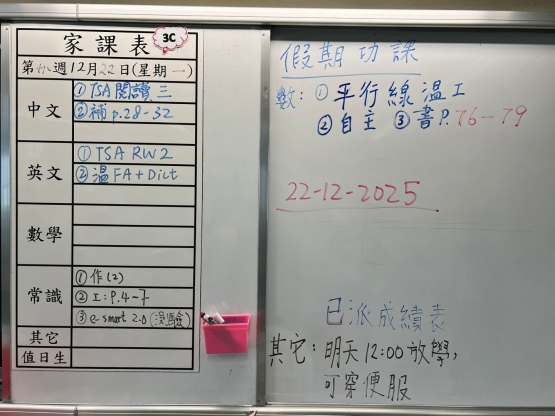 家課表
3C
第十六週12月22日(星期一)
中文
①TSA閱讀三
②補p.28-32
英文
①TSA RW2
②溫FA+Dict
數學
常識
①作(2)
②工:P.4-7
③e-smart 2.0
其它
值日生
假期功課
數:①平行線溫工
②自主 ③書P.76-79
22-12-2025
已派成績表
其它:明天12:00放學,
可穿便服